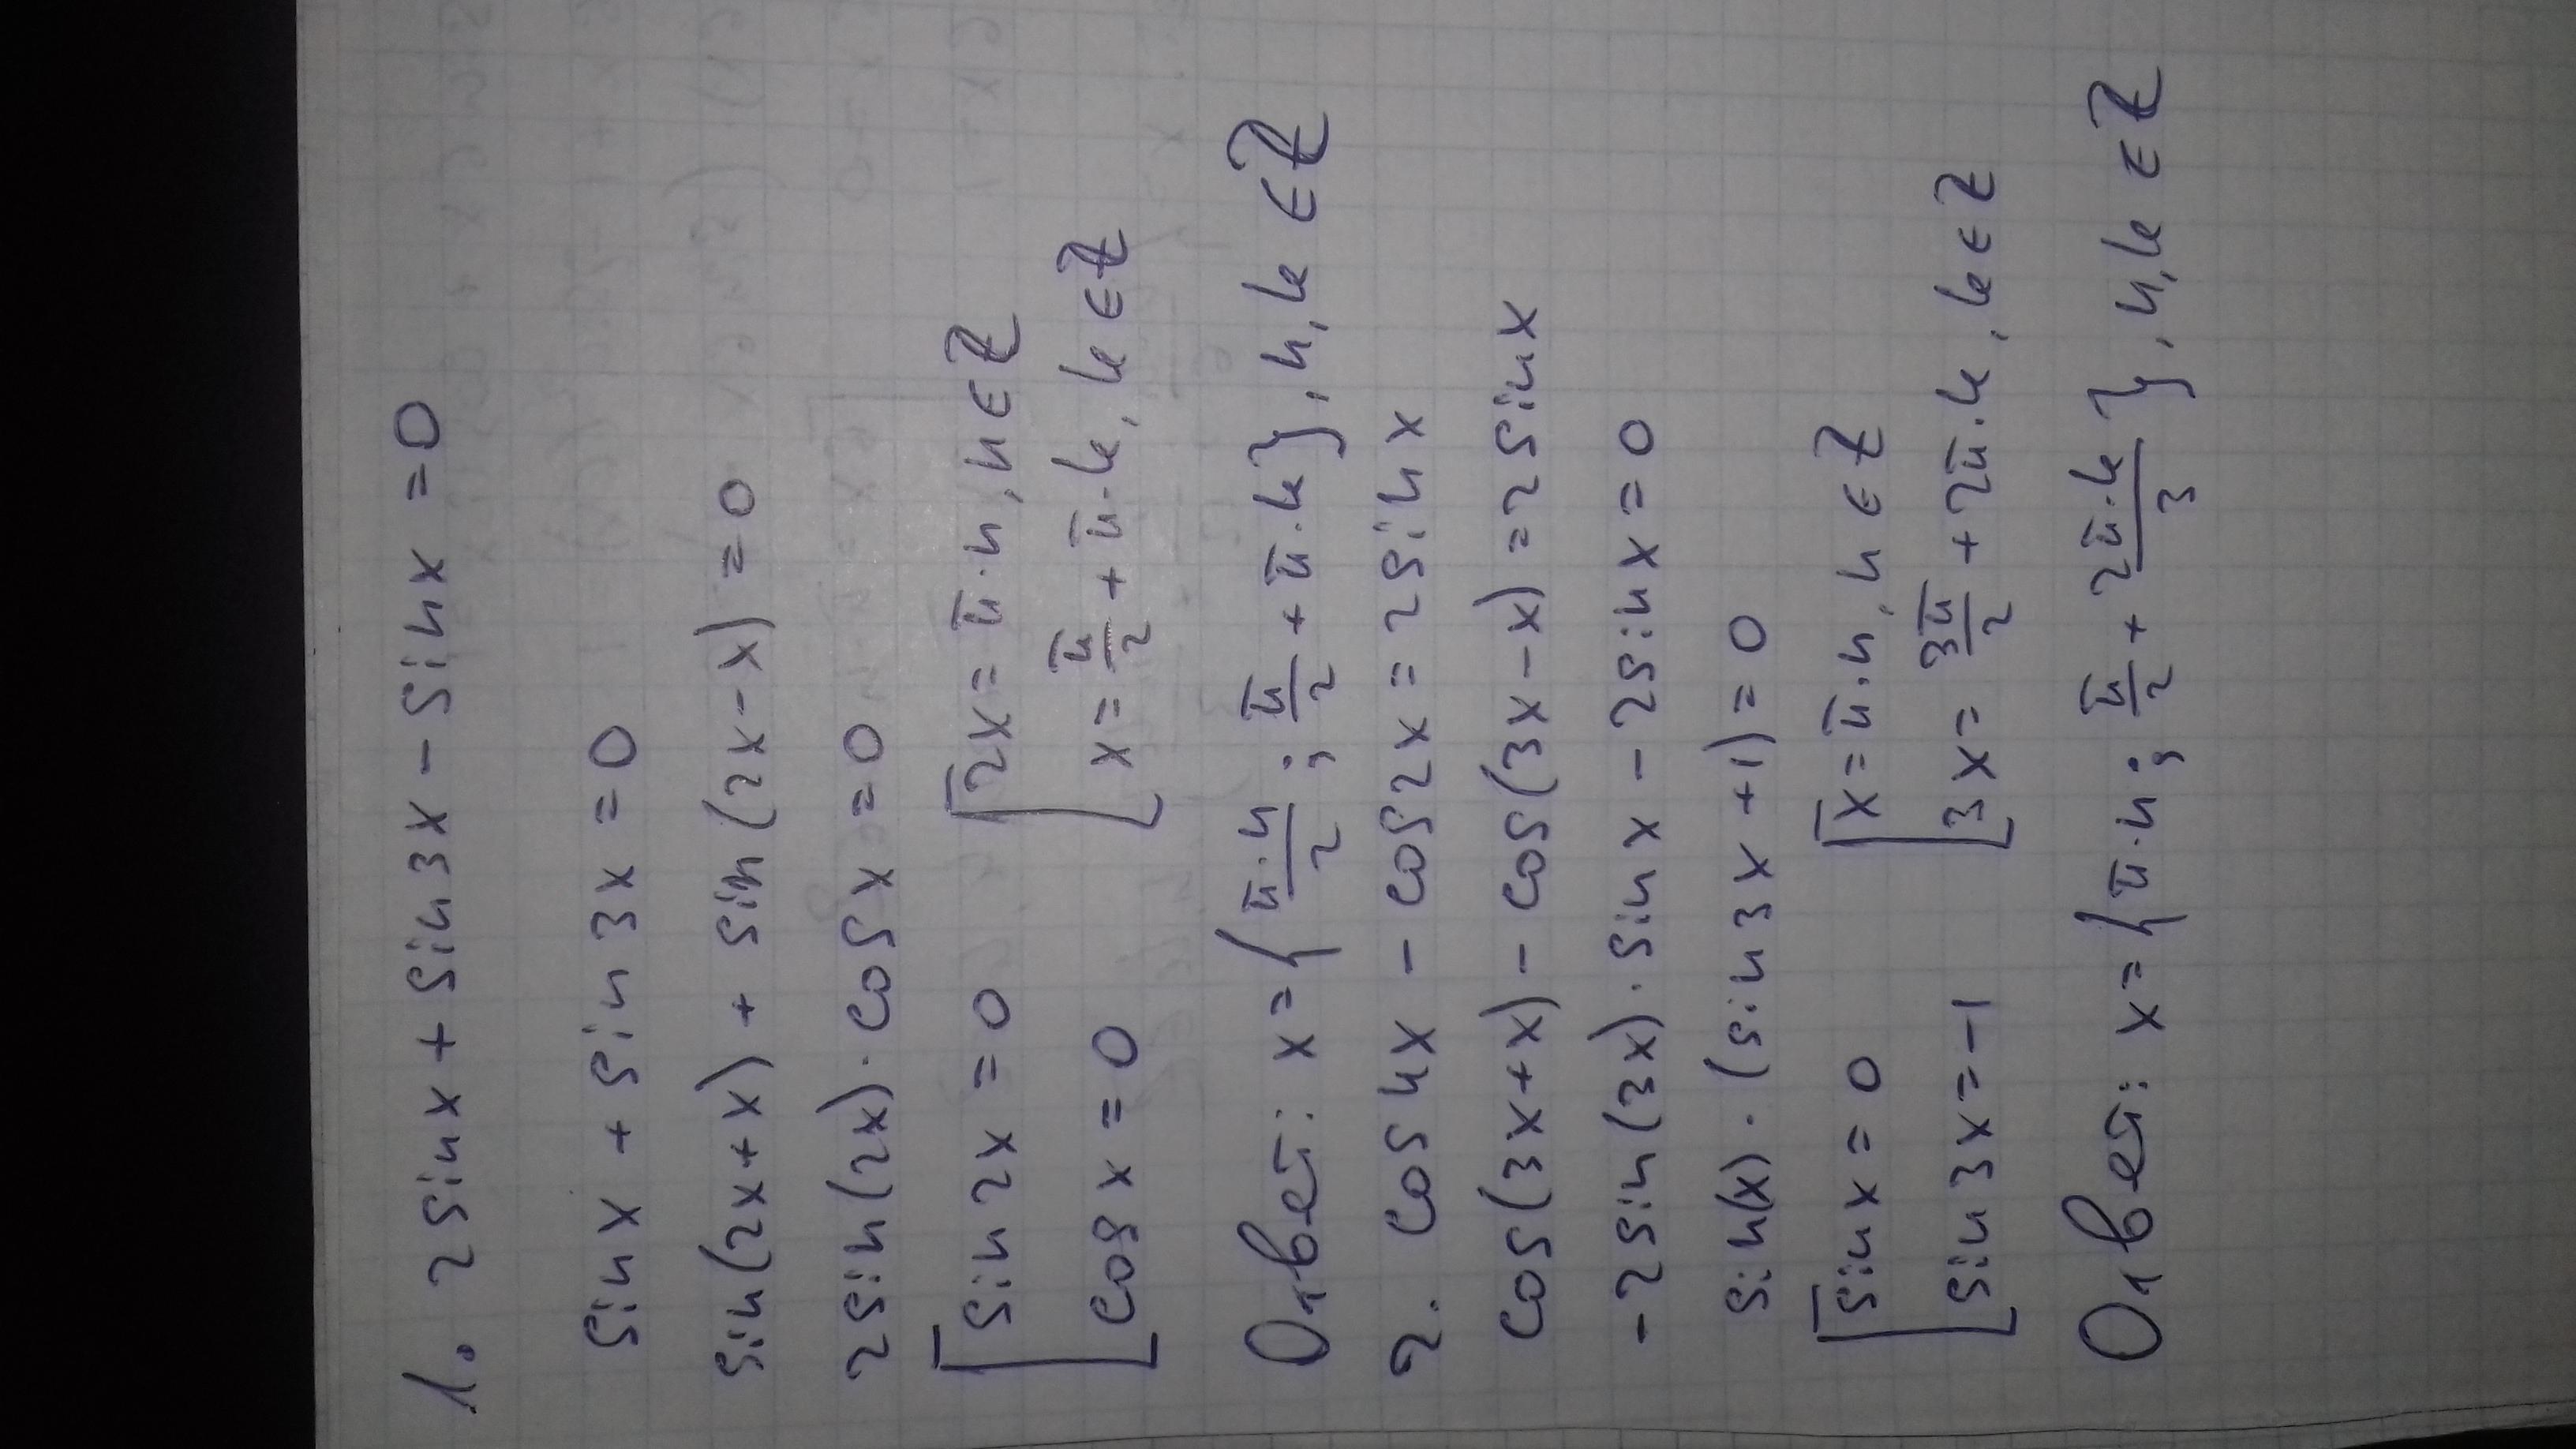 1. 2sinx + sin3x - sinx = 0
sinx + sin3x = 0
sin(2x+x) + sin(2x-x) = 0
2sin(2x)·cosx = 0
[sin2x = 0 [2x = π·n, n∈Z
[cosx = 0 [x = π/2 + π·k, k∈Z
Ответ: x = {π·n/2; π/2 + π·k}, n,k∈Z
2. cos4x - cos2x = 2sinx
cos(3x+x) - cos(3x-x) = 2sinx
-2sin(3x)·sinx - 2sinx = 0
sin(x)·(sin3x+1) = 0
[sinx = 0 [x = π·n, n∈Z
[sin3x = -1 [3x = 3π/2 + 2π·k, k∈Z
Ответ: x = {π·n; π/2 + 2π·k/3}, n,k∈Z